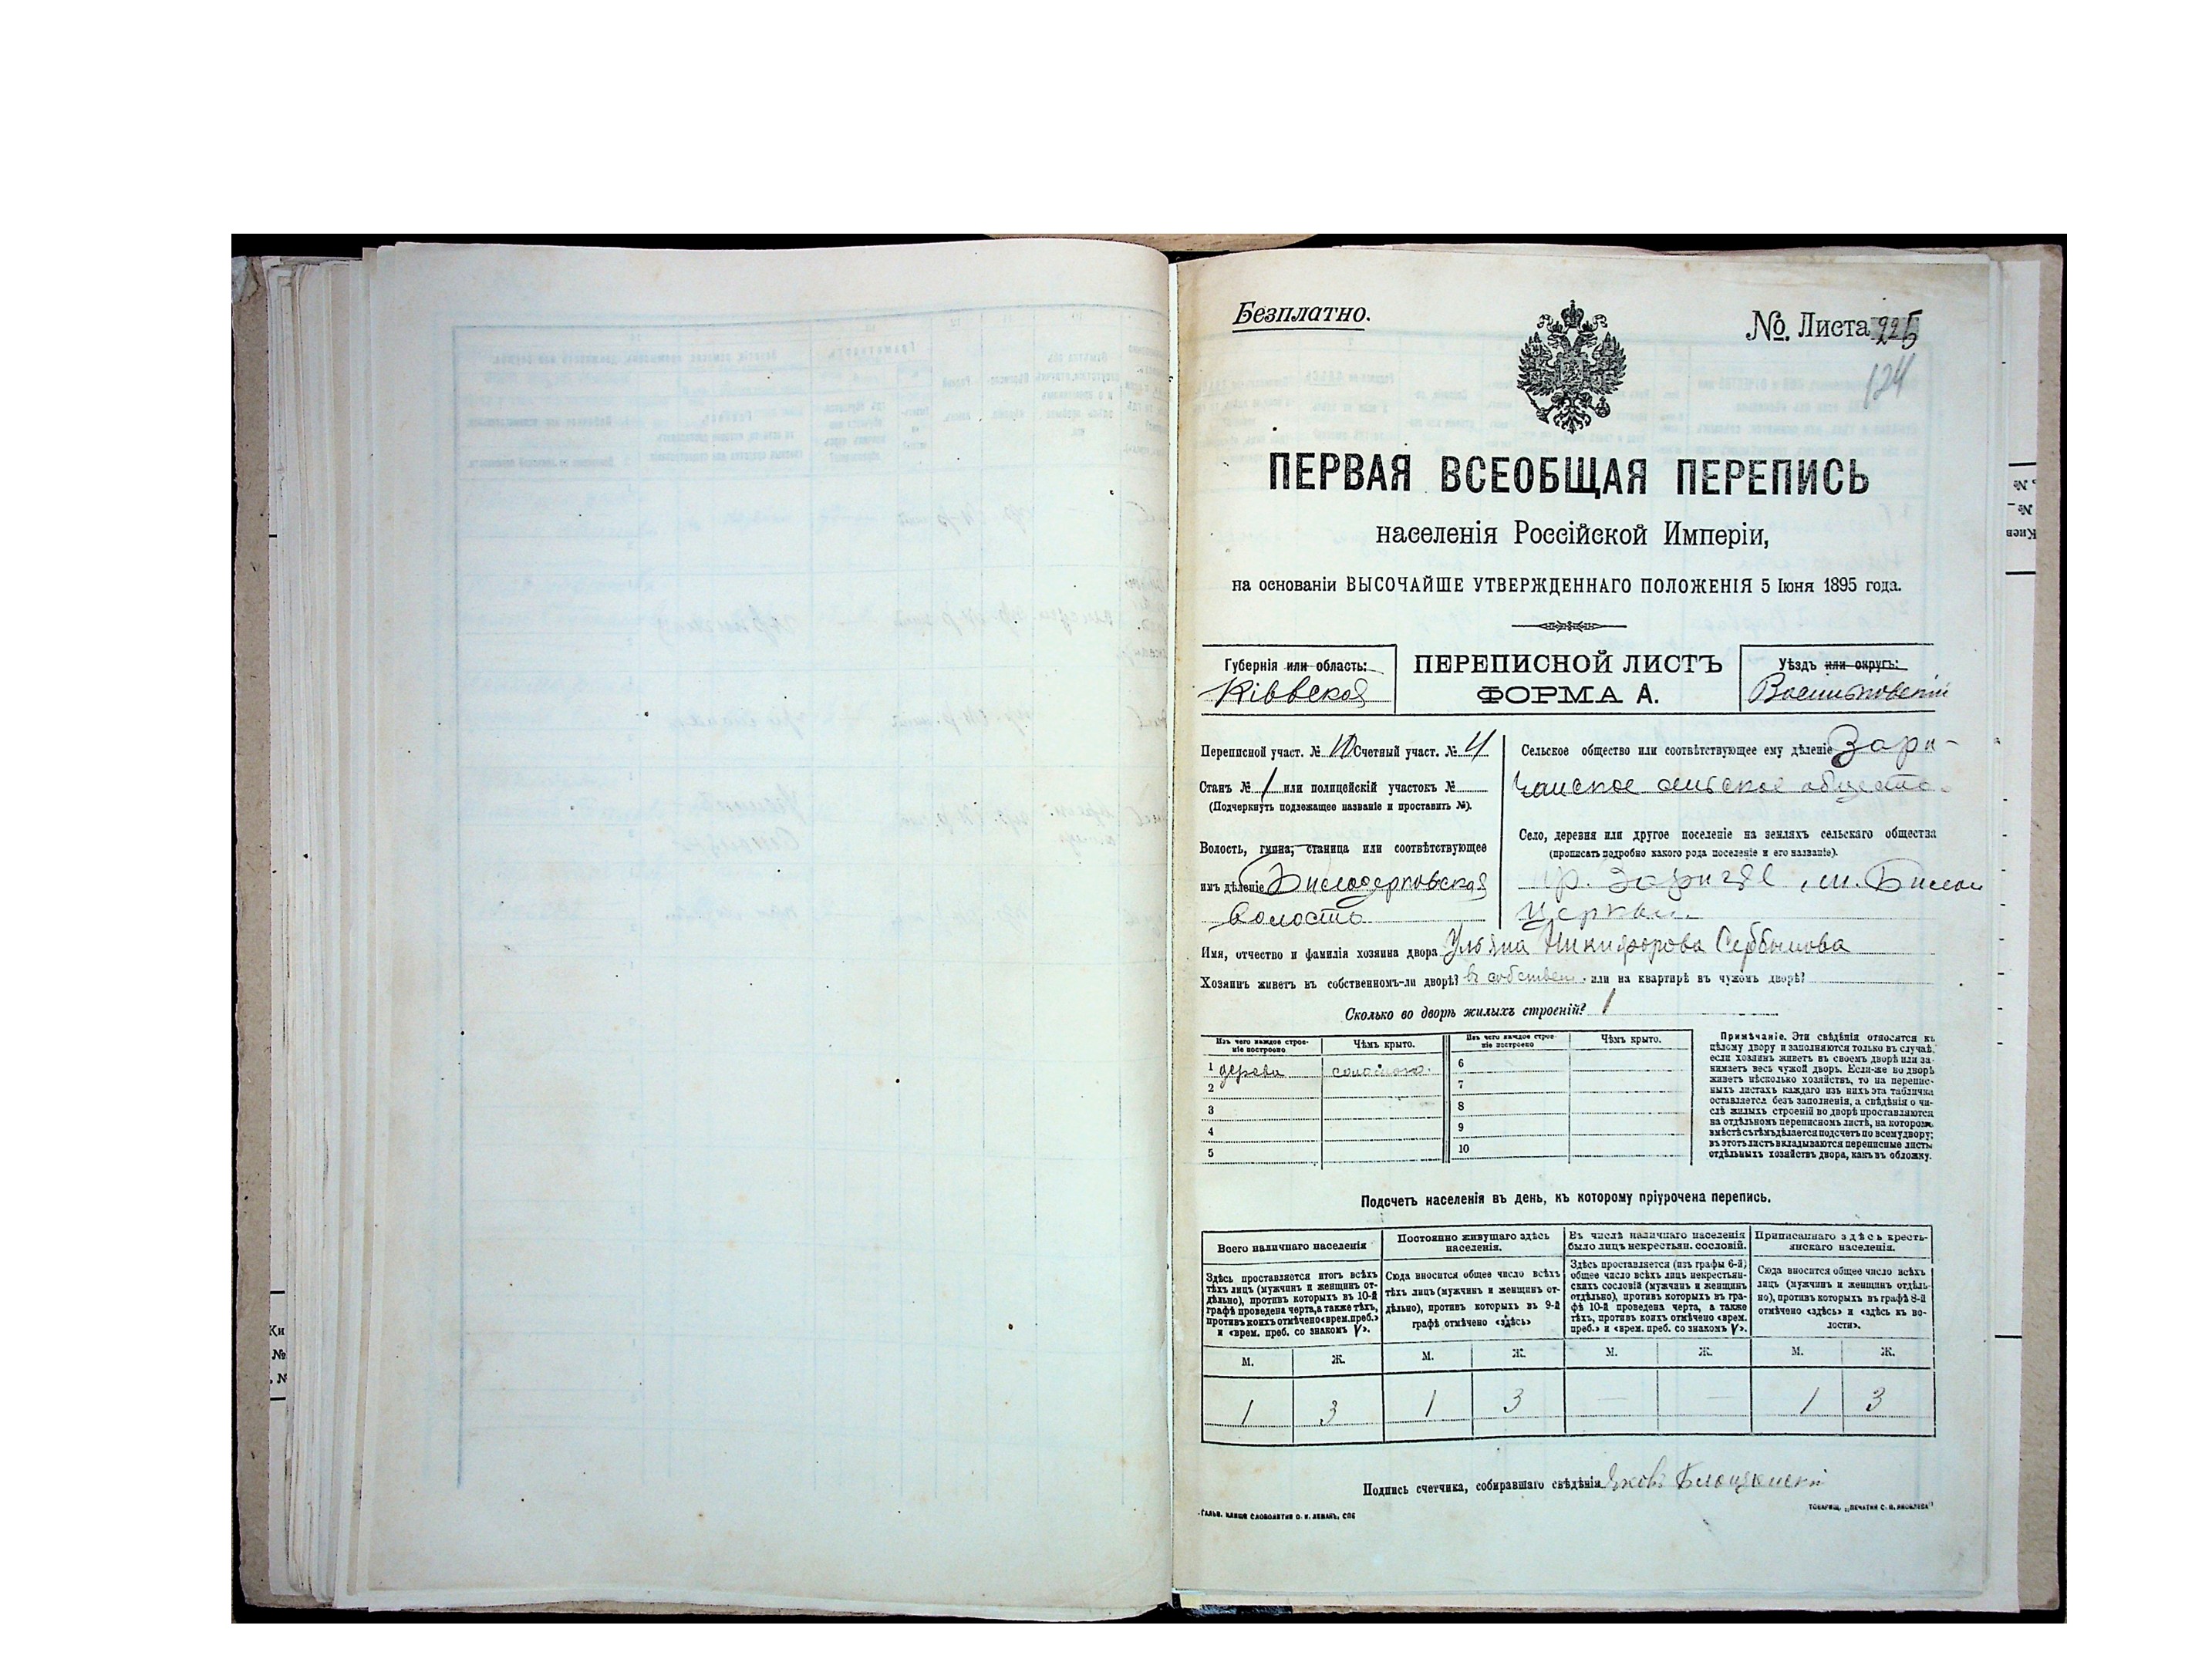 Безплатно.
№ Листа 225
124
ПЕРВАЯ ВСЕОБЩАЯ ПЕРЕПИСЬ
населенія Россійской Имперіи,
на основаніи ВЫСОЧАЙШЕ УТВЕРЖДЕННАГО ПОЛОЖЕНІЯ 5 Іюня 1895 года.
Губернія или область:
Кіевская
ПЕРЕПИСНОЙ ЛИСТЪ
ФОРМА А.
Уѣздъ или округъ:
Васильковскій
Переписной участ. № Счетный участ. № 4
Станъ № 1 или полицейскій участокъ №
(Подчеркнуть подлежащее названіе и проставить №).
Волость, гмина, станица или соотвѣтствующее
имъ дѣленіе Билоцерковская
волость
Сельское общество или соотвѣтствующее ему дѣленіе Зари-
чанское сельское общество
Село, деревня или другое поселеніе на земляхъ сельскаго общества
(прописать подробно какого рода поселеніе и его названіе).
пр. Заричье, м. Билои
Церкви
Имя, отчество и фамилія хозяина двора Ульяна Никифорова
Хозяинъ живетъ въ собственномъ-ли дворѣ? въ собствен. или на квартирѣ въ чужомъ дворѣ?
Сколько во дворѣ жилыхъ строеній? 1
Изъ чего каждое строе-
ніе построено
Чѣмъ крыто.
Изъ чего каждое строе-
ніе построено
Чѣмъ крыто.
1 дерева соломою.
2
3
4
5
6
7
8
9
10
Примѣчаніе. Эти свѣдѣнія относятся къ
цѣлому двору и заполняются только въ случаѣ,
если хозяинъ живетъ въ своемъ дворѣ или за-
нимаетъ весь чужой дворъ. Если-же во дворѣ
живетъ нѣсколько хозяйствъ, то на перепис-
ныхъ листахъ каждаго изъ нихъ эта табличка
оставляется безъ заполненія, а свѣдѣнія о чи-
слѣ жилыхъ строеній во дворѣ проставляются
на отдѣльномъ переписномъ листѣ, на которомъ
вмѣстѣ съ тѣмъ дѣлается подсчетъ по всему двору;
въ этотъ листъ вкладываются переписные листы
отдѣльныхъ хозяйствъ двора, какъ въ обложку.
Подсчетъ населенія въ день, къ которому пріурочена перепись.
Всего наличнаго населенія
Здѣсь проставляется итогъ всѣхъ
тѣхъ лицъ (мужчинъ и женщинъ от-
дѣльно), противъ которыхъ въ 10-й
графѣ проведена черта, а также тѣхъ,
противъ коихъ отмѣчено «врем. преб.»
и «врем. преб. со знакомъ V».
Постоянно живущаго здѣсь
населенія.
Сюда вносится общее число всѣхъ
тѣхъ лицъ (мужчинъ и женщинъ от-
дѣльно), противъ которыхъ въ 9-й
графѣ отмѣчено «здѣсь»
Въ числѣ наличнаго населенія
было лицъ некрестьян. сословій.
Здѣсь проставляется (изъ графы 6-й)
общее число всѣхъ лицъ некрестьян-
скихъ сословій (мужчинъ и женщинъ
отдѣльно), противъ которыхъ въ гра-
фѣ 10-й проведена черта, а также
тѣхъ, противъ коихъ отмѣчено «врем.
преб.» и «врем. преб. со знакомъ V».
Приписаннаго здѣсь кресть-
янскаго населенія.
Сюда вносится общее число всѣхъ
лицъ (мужчинъ и женщинъ отдѣль-
но), противъ которыхъ въ графѣ 8-й
отмѣчено «здѣсь» и «здѣсь къ во-
лости».
М. Ж. М. Ж. М. Ж. М. Ж.
1 3 1 3 — — 1 3
Подпись счетчика, собиравшаго свѣдѣнія Яковъ
ГАЛЬВ. КЛИШЕ СЛОВОЛИТНИ О. И. ЛЕМАНЪ, СПБ
ТОВАРИЩ. „ПЕЧАТНЯ С. П. ЯКОВЛЕВА"